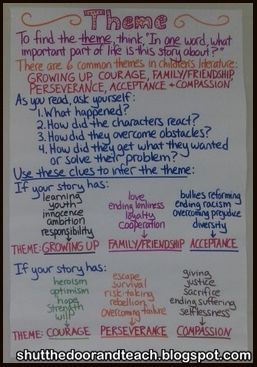 Theme
To find the theme, think, "In one word, what
important part of life is this story about?"
There are 6 common themes in children's literature:
GROWING UP, COURAGE, FAMILY/FRIENDSHIP,
PERSEVERANCE, ACCEPTANCE + COMPASSION
As you read, ask yourself:
1. What happened?
2. How did the characters react?
3. How did they overcome obstacles?
4. How did they get what they wanted
or solve their problem?
Use these clues to infer the theme:
If your story has:
learning
youth
innocence
ambition
responsibility
love
ending lonliness
loyalty
cooperation
bullies reforming
ending racism
overcoming prejudice
diversity
THEME: GROWING UP FAMILY/FRIENDSHIP ACCEPTANCE
If your story has:
heroism
optimism
hope
strength
will
escape
survival
risk-taking
rebellion
overcoming failure
giving
justice
sacrifice
ending suffering
selflessness
THEME: COURAGE PERSEVERANCE COMPASSION
shutthedoorandteach.blogspot.com